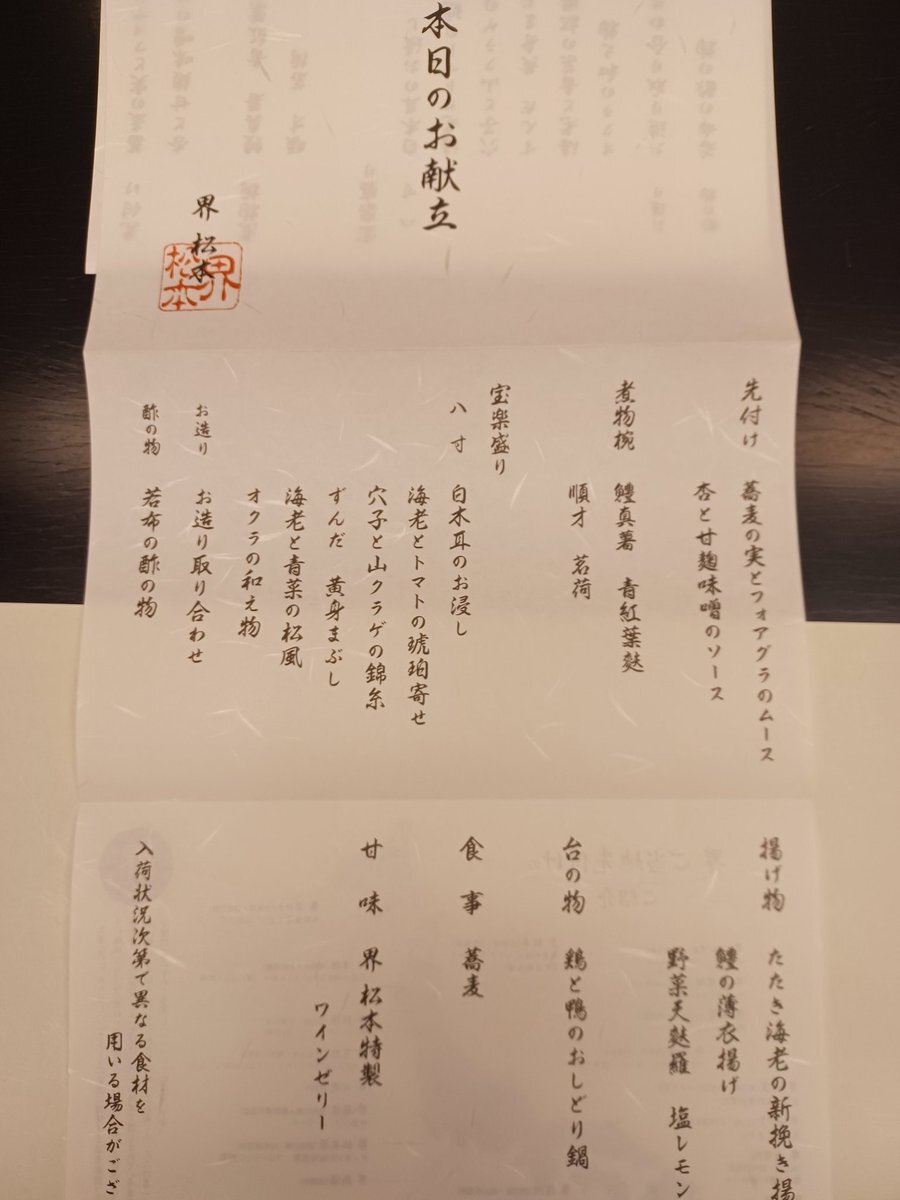 本日のお献立
界 松本
界松本
先付け 蕎麦の実とフォアグラのムース
杏と甘麹味噌のソース
煮物椀 鱧真薯 青紅葉麩
順才 茗荷
宝楽盛り
八寸 白木耳のお浸し
海老とトマトの琥珀寄せ
穴子と山クラゲの錦糸
ずんだ 黄身まぶし
海老と青菜の松風
オクラの和え物
お造り お造り取り合わせ
酢の物 若布の酢の物
揚げ物 たたき海老の新挽き揚
鱧の薄衣揚げ
野菜天麩羅 塩レモン
台の物 鶏と鴨のおしどり鍋
食事 蕎麦
甘味 界 松本特製
ワインゼリー
入荷状況次第で異なる食材を
用いる場合がござ